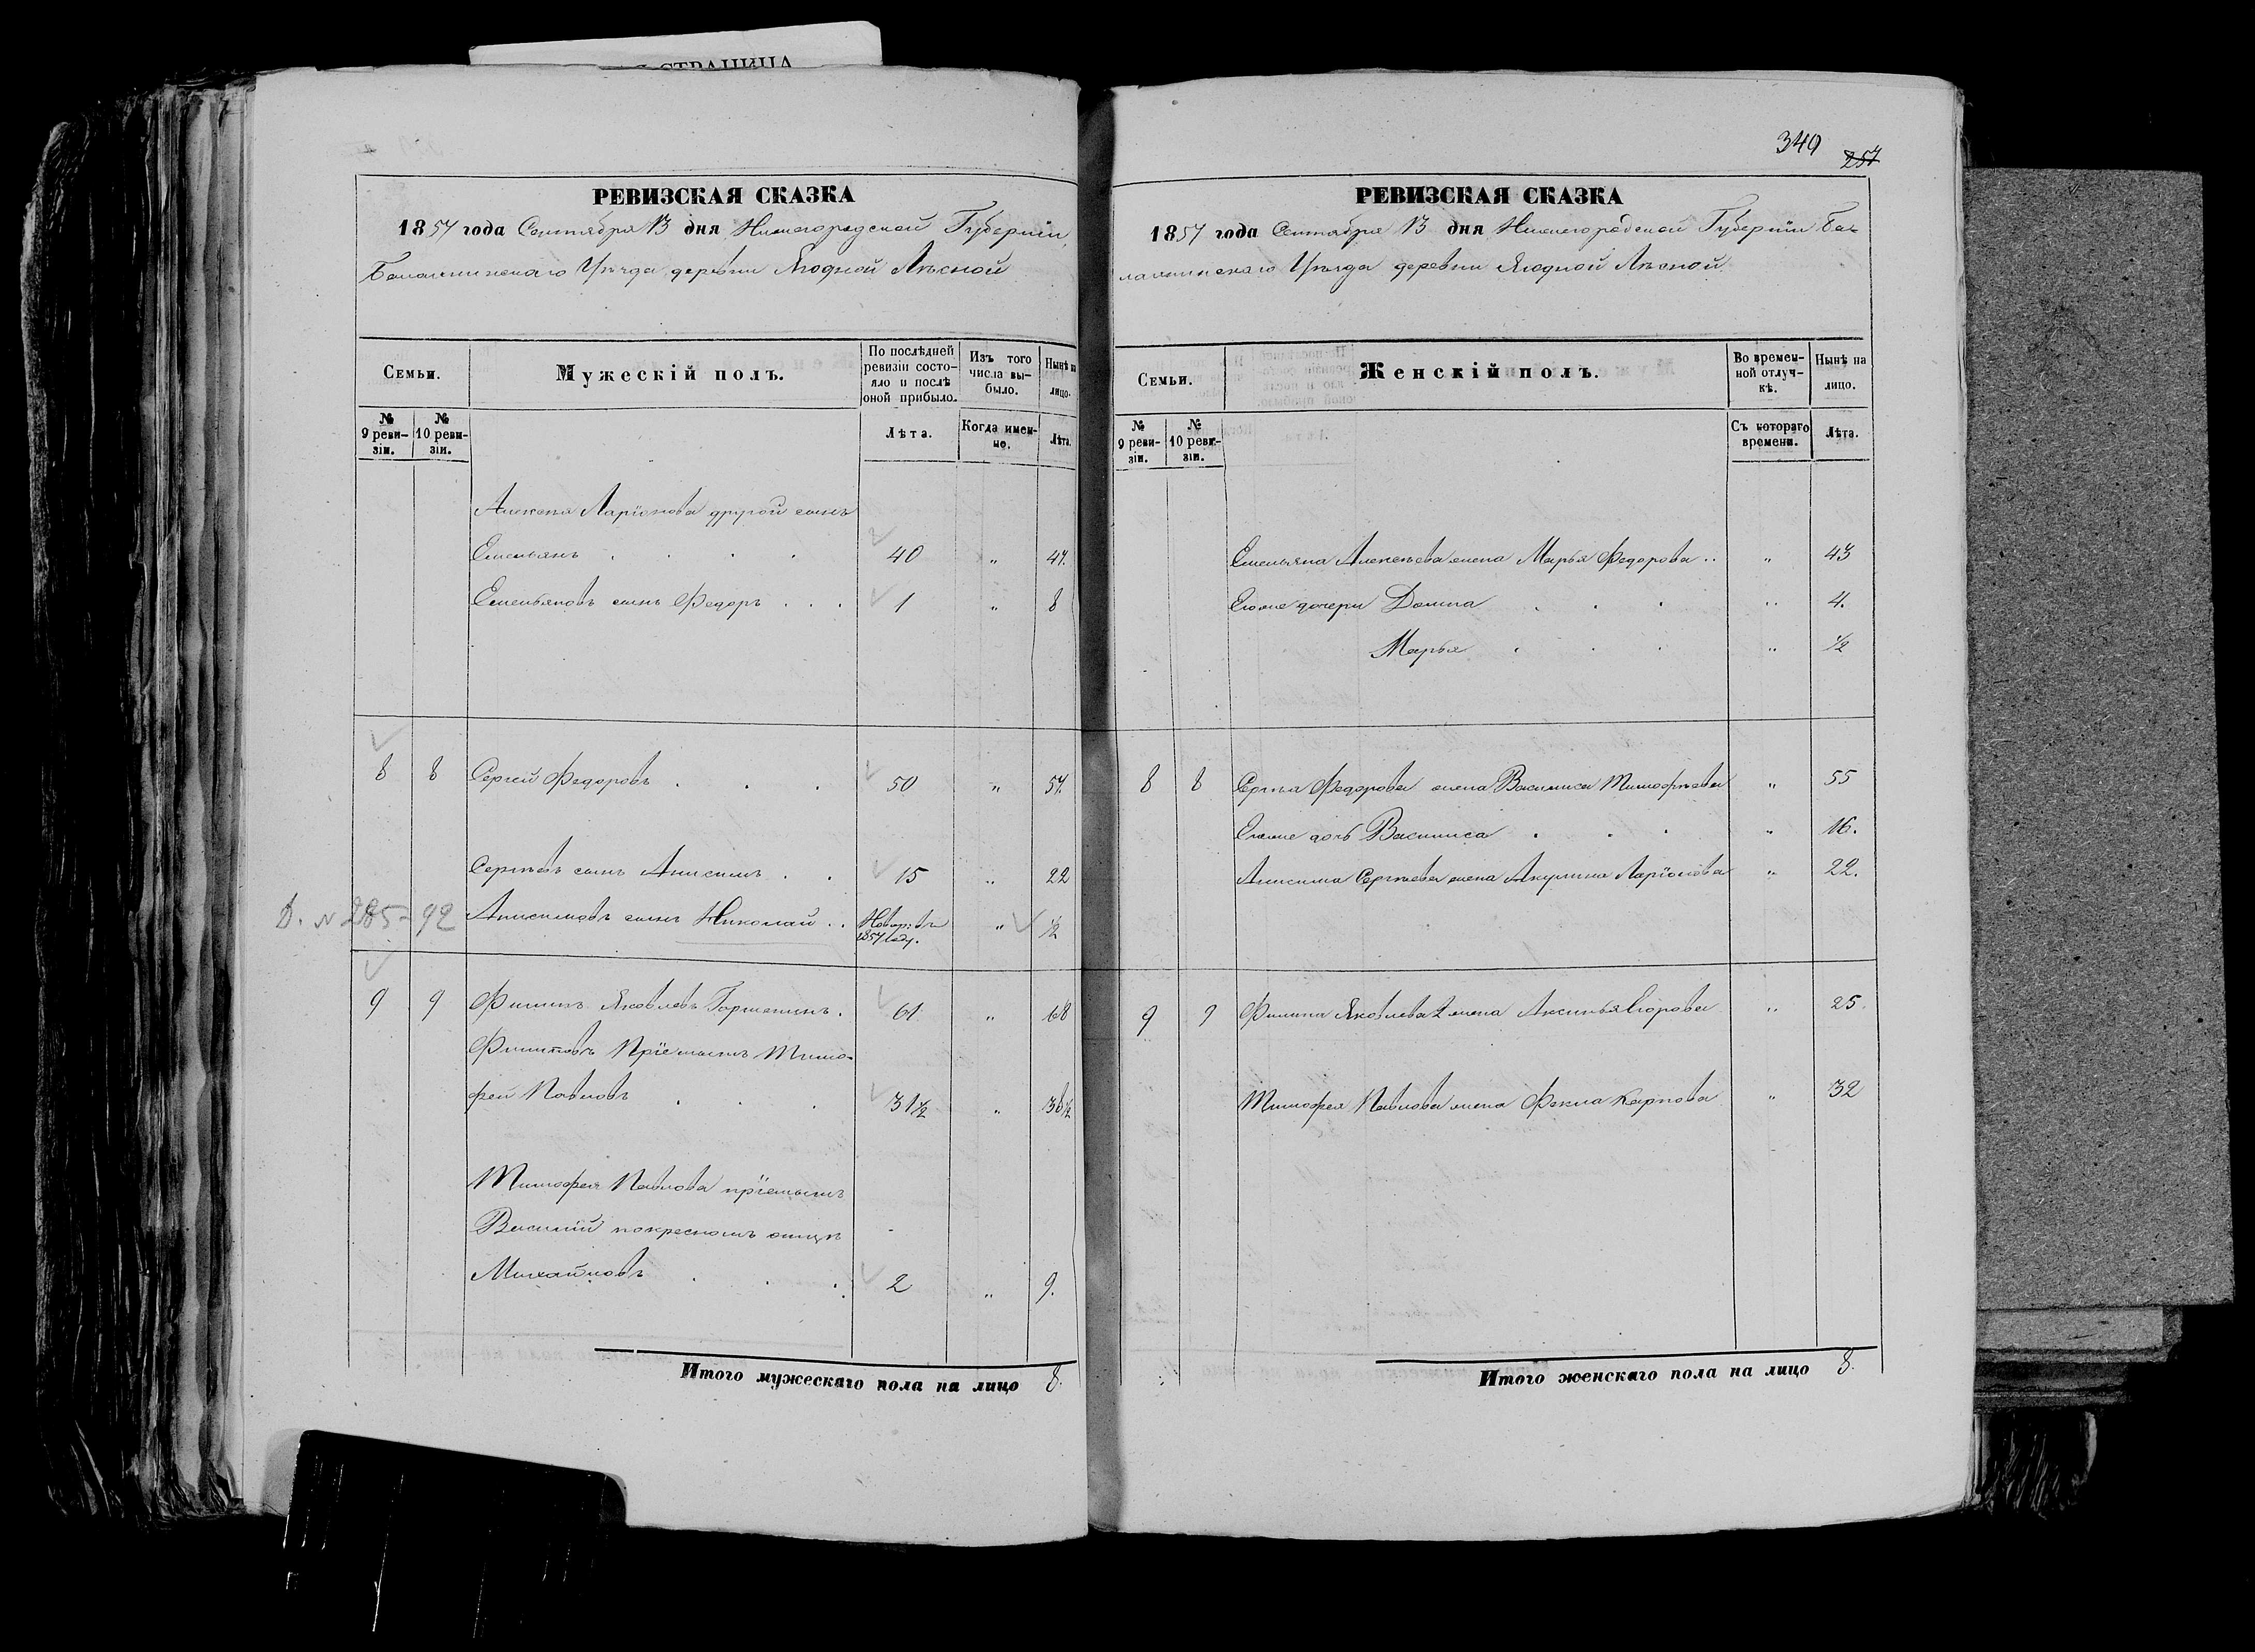 СТРАНИЦА
РЕВИЗСКАЯ СКАЗКА
1857 года Сентября 13 дня Нижегородской Губернiи,
Балахнинскаго Уѣзда деревни Ягодной Лѣсной
Семьи.
Мужескiй полъ.
По послѣдней ревизiи состояло и послѣ оной прибыло.
Изъ того числа выбыло.
Нынѣ на лицо.
№ 9 ревизiи.
№ 10 ревизiи.
Лѣта.
Когда именно.
Лѣта.
Алексѣя Ларiонова другой сынъ
Емельянъ . . . . 40 " 47.
Емельяновъ сынъ Федоръ . . . 1 " 8
8 8 Сергей Федоровъ . . . 50 " 57.
Сергѣевъ сынъ Анисимъ . . 15 " 22
Д. N 285-92 Анисимовъ сынъ Николай . . Новорж въ 1857 году. " ½
9 9 Филипъ Яковлевъ Горшенинъ . 61 " 68
Филиповъ Прiемышъ Тимо-
фей Павловъ . . . 31½ " 38½
Тимофея Павлова прiемышъ
Василiй покресномъ отцѣ
Михайловъ . . . 2 " 9.
Итого мужескаго пола на лицо 8.
349
257
РЕВИЗСКАЯ СКАЗКА
1857 года Сентября 13 дня Нижегородской Губернiи Ба-
лахнинскаго Уѣзда деревни Ягодной Лѣсной
Семьи.
Женскiй полъ.
Во временной отлучкѣ.
Нынѣ на лицо.
№ 9 ревизiи.
№ 10 ревизiи.
Съ котораго времени.
Лѣта.
Емельяна Алексѣева жена Марья Федорова .. " 43
Егоже дочери Домна . . . " 4.
Марья . . . " ½
8 8 Сергѣя Федорова жена Василиса Тимофѣева " 55
Егоже дочь Василиса . . . " 16.
Анисима Сергѣева жена Акулина Ларiонова " 22.
9 9 Филипа Яковлева 2 жена Аксинья Егорова " 25.
Тимофея Павлова жена Фекла Карпова " 32
Итого женскаго пола на лицо 8.